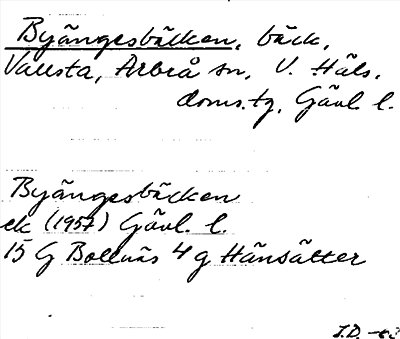 Byängesbäcken, bäck,
Vallsta, Arbrå sn, V. Häls.
doms.tg, Gävl. l.
Byängesbäcken
ek (1957) Gävl. l.
15 G Bollnäs 4 g Hänsätter
J.D.